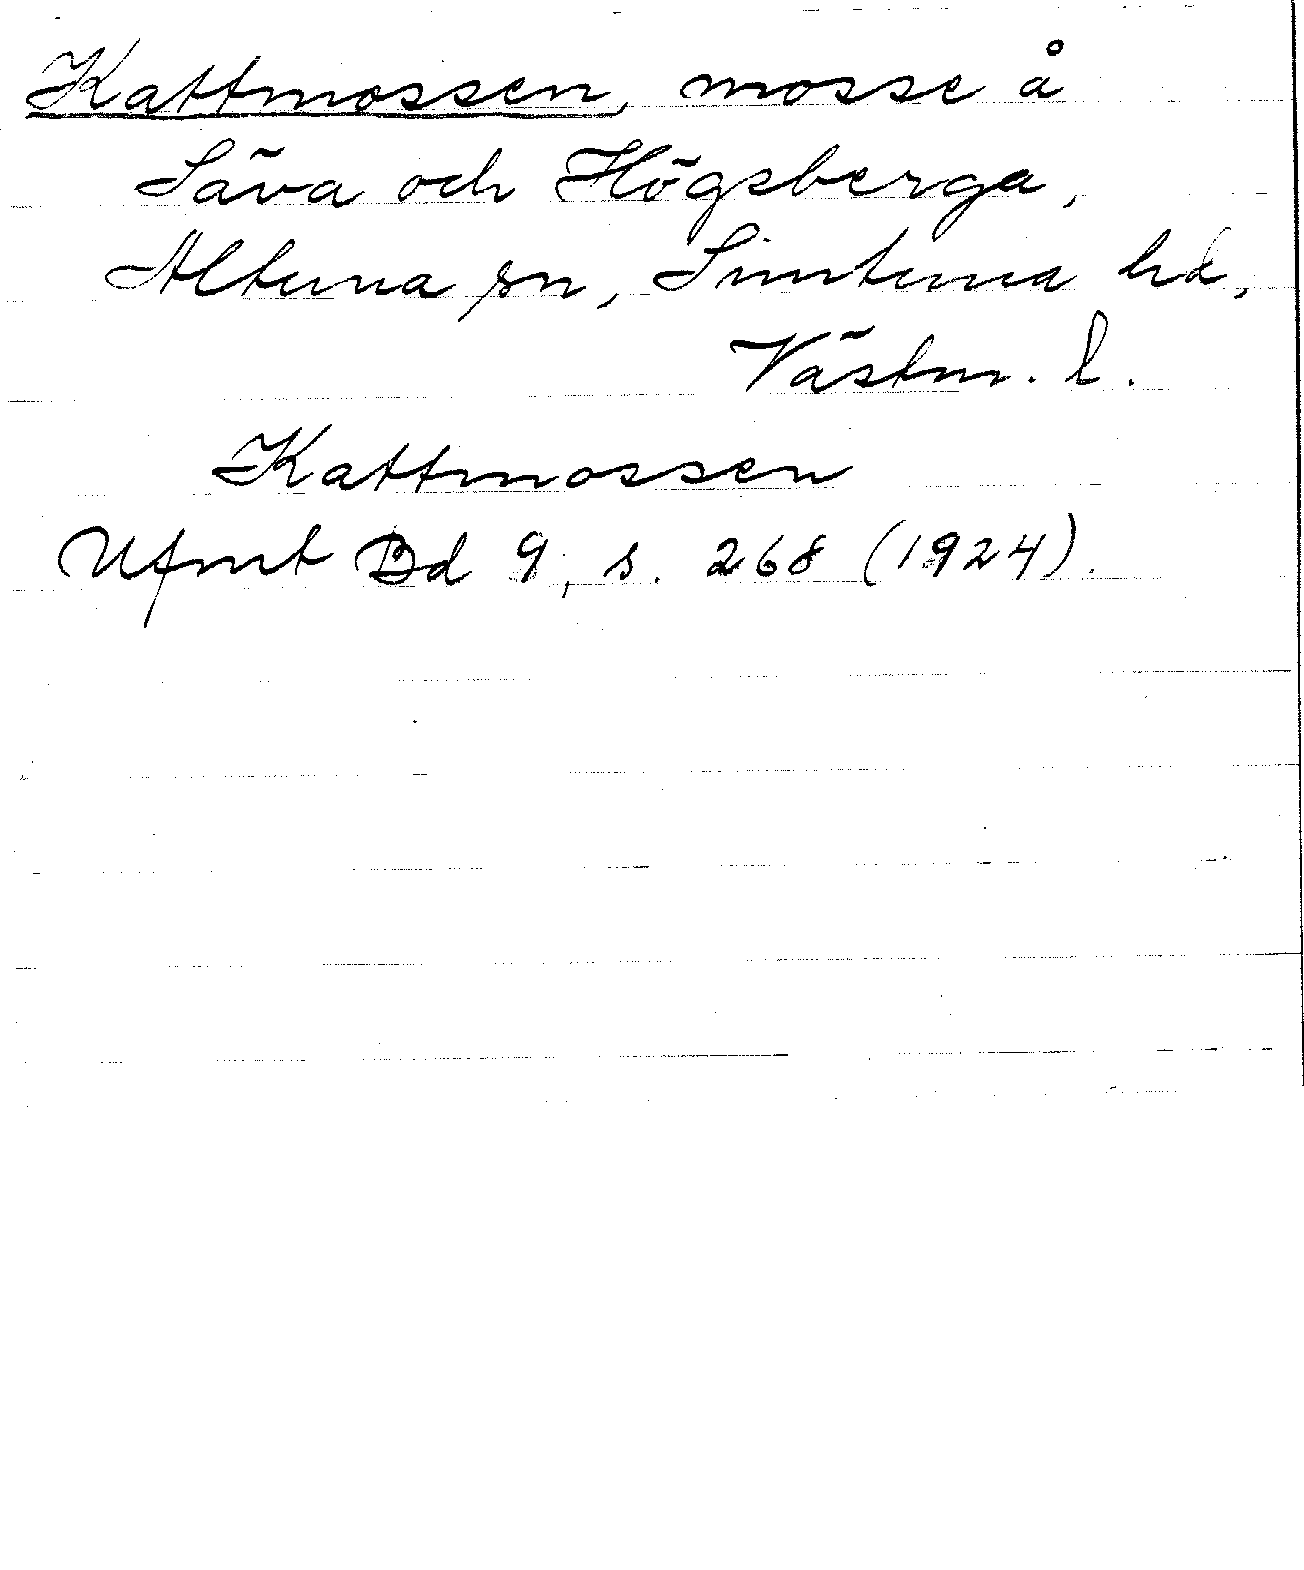 Kattmossen, mosse å
Säva och Högsberga,
Altuna sn, Simtuna hd,
Västm. l.
Kattmossen
Ufmt Bd 9, s. 268 (1924).